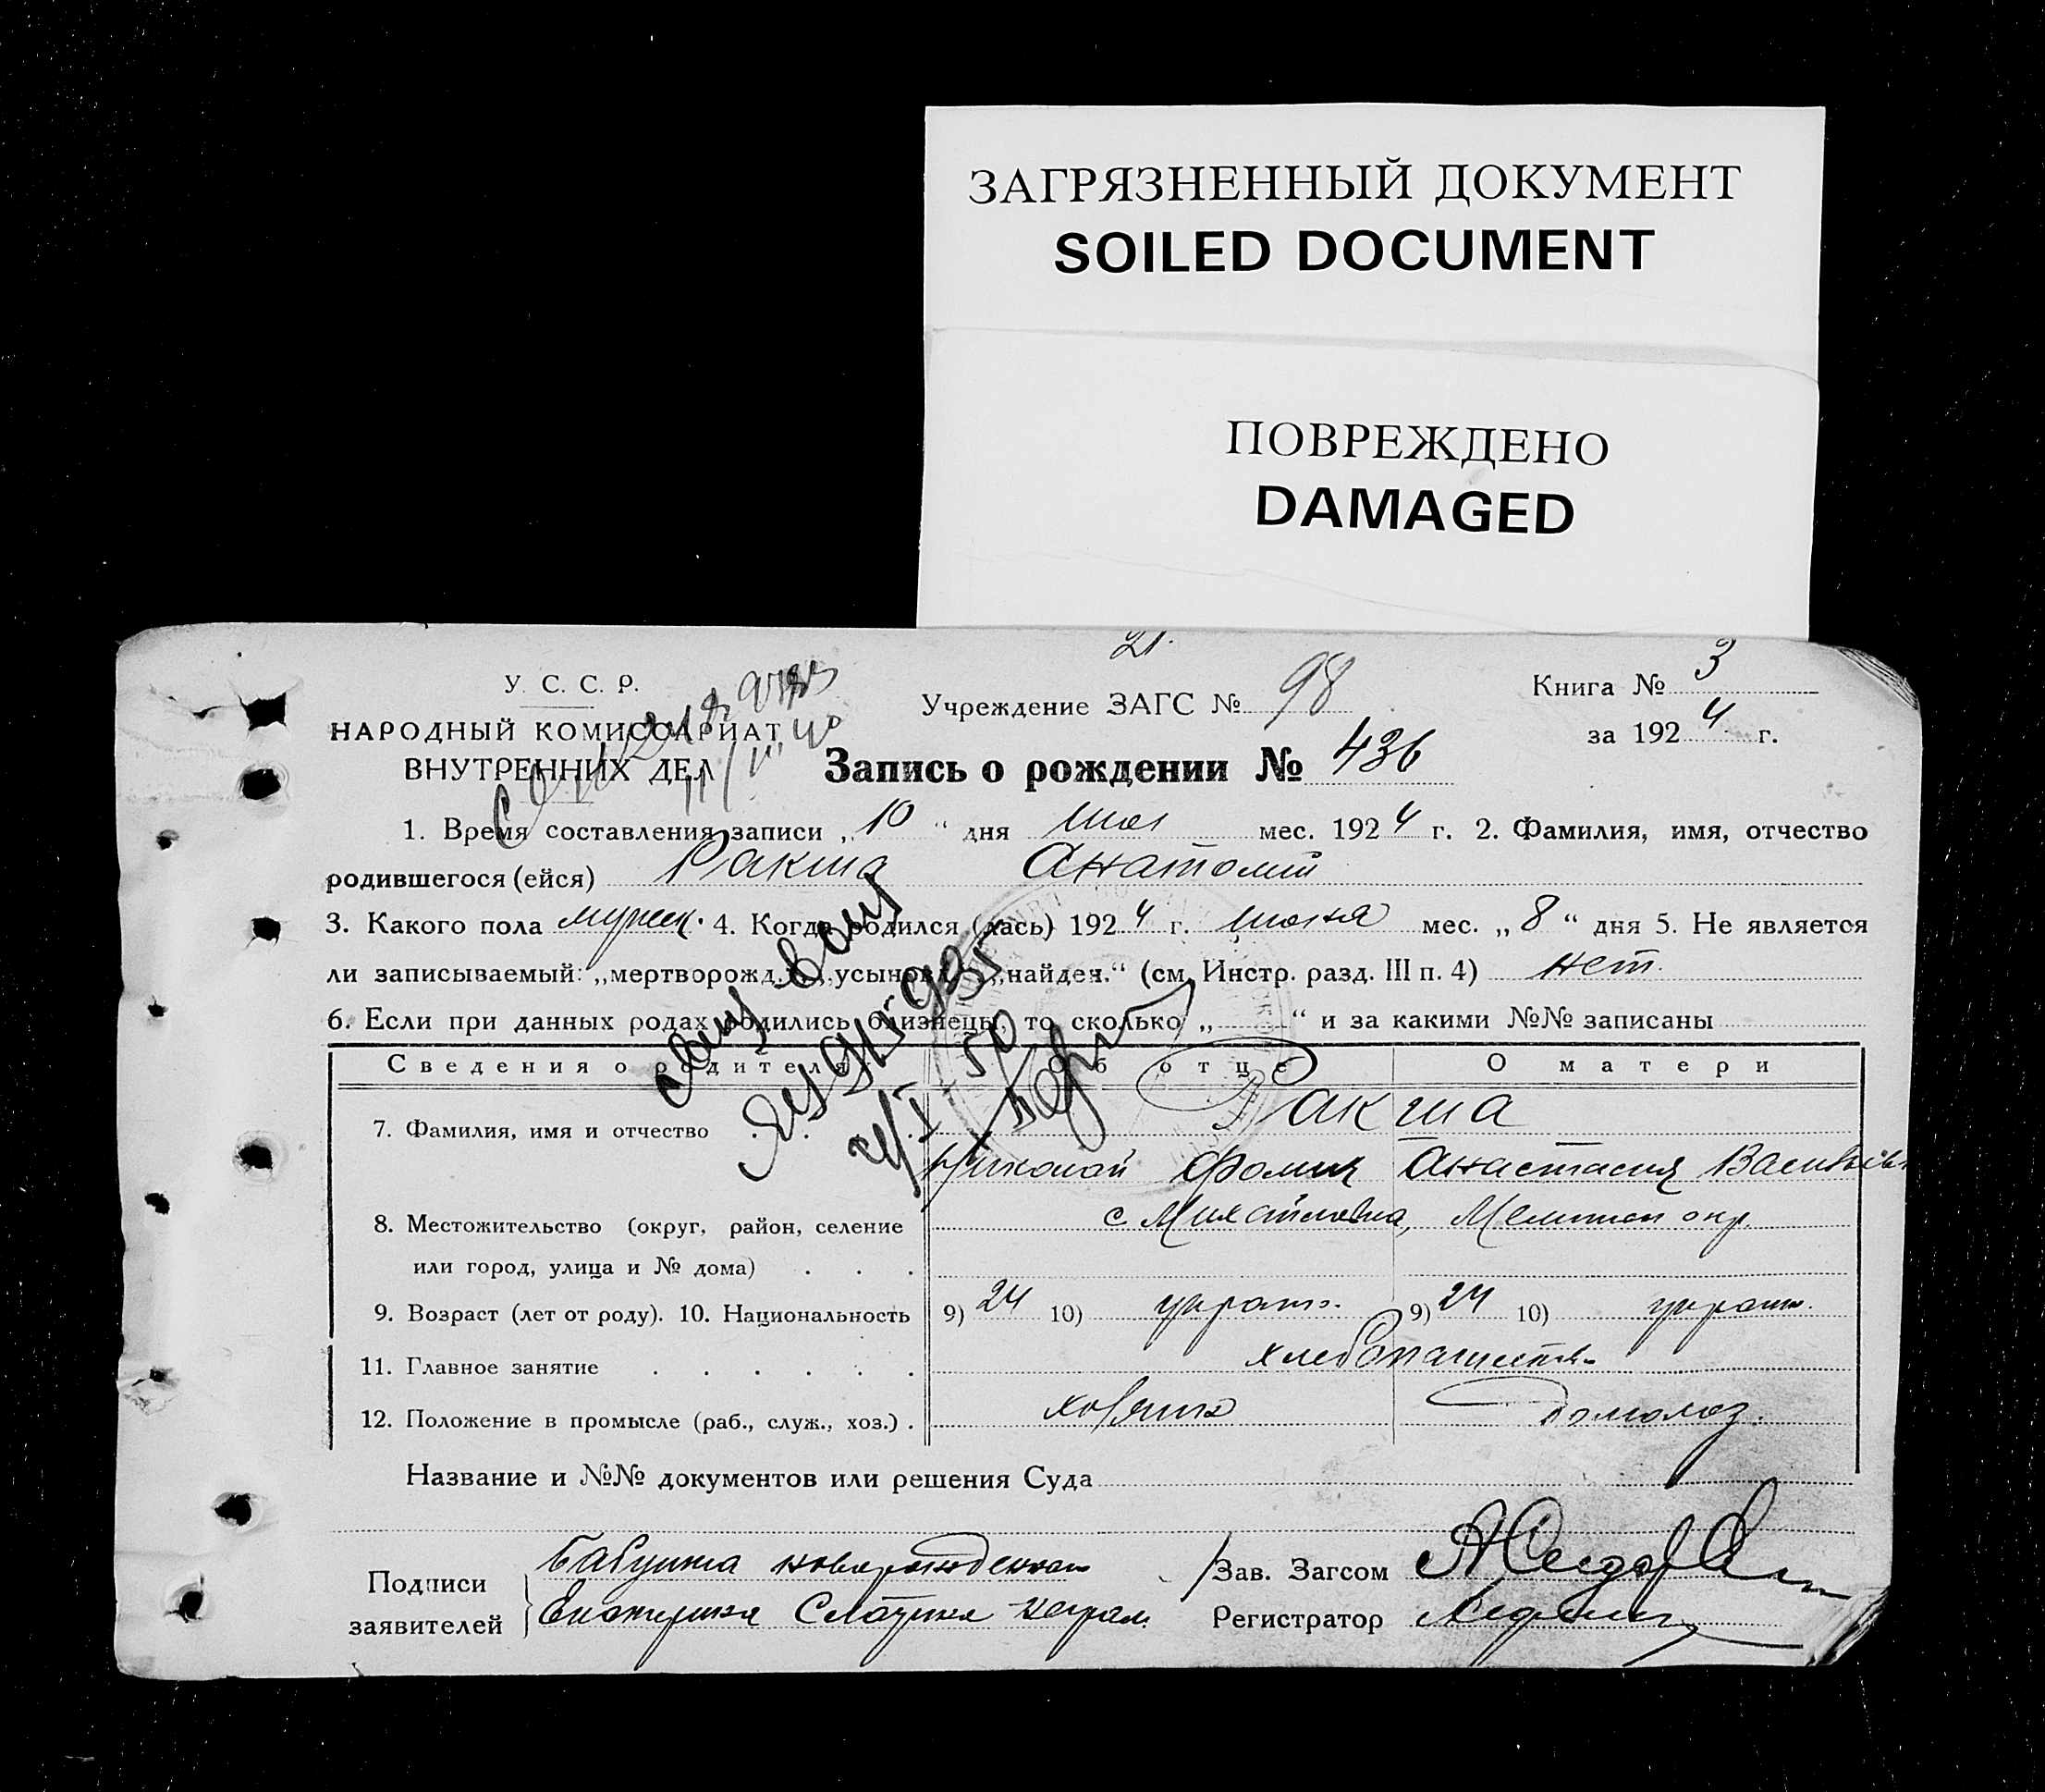 ЗАГРЯЗНЕННЫЙ ДОКУМЕНТ
SOILED DOCUMENT
ПОВРЕЖДЕНО
DAMAGED
21.
У. С. С. Р.
НАРОДНЫЙ КОМИССАРИАТ
ВНУТРЕННИХ ДЕЛ
Учреждение ЗАГС № 98
Книга № 3
за 1924 г.
Запись о рождении № 436
1. Время составления записи „10“ дня мес. 1924 г. 2. Фамилия, имя, отчество
родившегося (ейся) Ракша Анатолий
3. Какого пола мужск. 4. Когда родился (лась) 1924 г. июня мес. „8“ дня 5. Не является
ли записываемый: „мертворожд.“, „усыновл.“, „найден.“ (см. Инстр. разд. III п. 4) нет.
6. Если при данных родах родились близнецы, то сколько „ “ и за какими №№ записаны
Сведения о родителях Об отце О матери
7. Фамилия, имя и отчество . . . . Ракша
Николай Фомич Анастасия
8. Местожительство (округ, район, селение с Михайловка, Мелитоп окр
или город, улица и № дома) . . .
9. Возраст (лет от роду). 10. Национальность 9) 24 10) украин. 9) 24 10) украин.
11. Главное занятие . . . . . . хлебопашество
12. Положение в промысле (раб., служ., хоз.) . хозяин домохоз.
Название и №№ документов или решения Суда
Подписи
заявителей
Бабушка новорожденного
Екатерина неграм.
Зав. Загсом
Регистратор